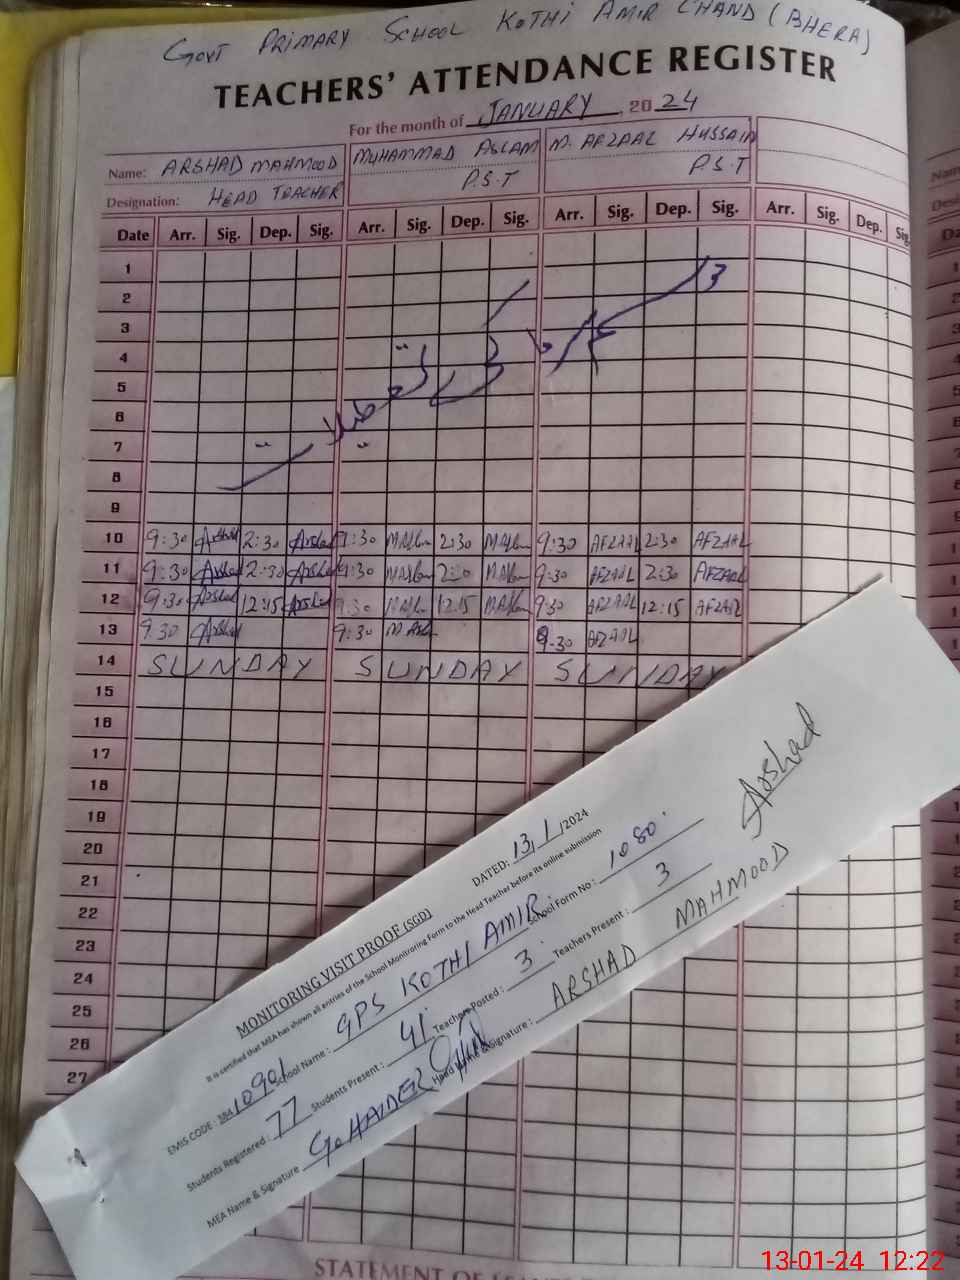 GOVT PRIMARY SCHOOL KOTHI AMIR CHAND (BHERA)
TEACHERS' ATTENDANCE REGISTER
For the month of JANUARY, 2024
Name: ARSHAD MAHMOOD MUHAMMAD ASLAM M. AFZAAL HUSSAIN
Designation: HEAD TEACHER P.S.T P.S.T
Date Arr. Sig. Dep. Sig. Arr. Sig. Dep. Sig. Arr. Sig. Dep. Sig. Arr. Sig. Dep. Sig.
1
2
3
4
5
6
7
8
9
10 9:30 Arshad 2:30 Arshad 9:30 M.Aslam 2:30 M.Aslam 9:30 AFZAAL 2:30 AFZAAL
11 9:30 Arshad 2:30 Arshad 9:30 M.Aslam 2:30 M.Aslam 9:30 AFZAAL 2:30 AFZAAL
12 9:30 Arshad 12:15 Arshad 9:30 M.Aslam 12:15 M.Aslam 9:30 AFZAAL 12:15 AFZAAL
13 9:30 Arshad 9:30 M.Aslam 9:30 AFZAAL
14 SUNDAY SUNDAY SUNDAY
15
16
17
18
19
20
21
22
23
24
25
26
27
MONITORING VISIT PROOF (SGD) DATED: 13/1/2024
It is certified that MEA has shown all entries of the School Monitoring Form to the Head Teacher before its online submission
EMIS CODE: 38410901 School Name: GPS KOTHI AMIR School Form No: 1080
Students Registered: 77 Students Present: 41 Teachers Posted: 3 Teachers Present: 3
MEA Name & Signature G. HAIDER Head Name & Signature: ARSHAD MAHMOOD Arshad
STATEMENT OF
13-01-24 12:22